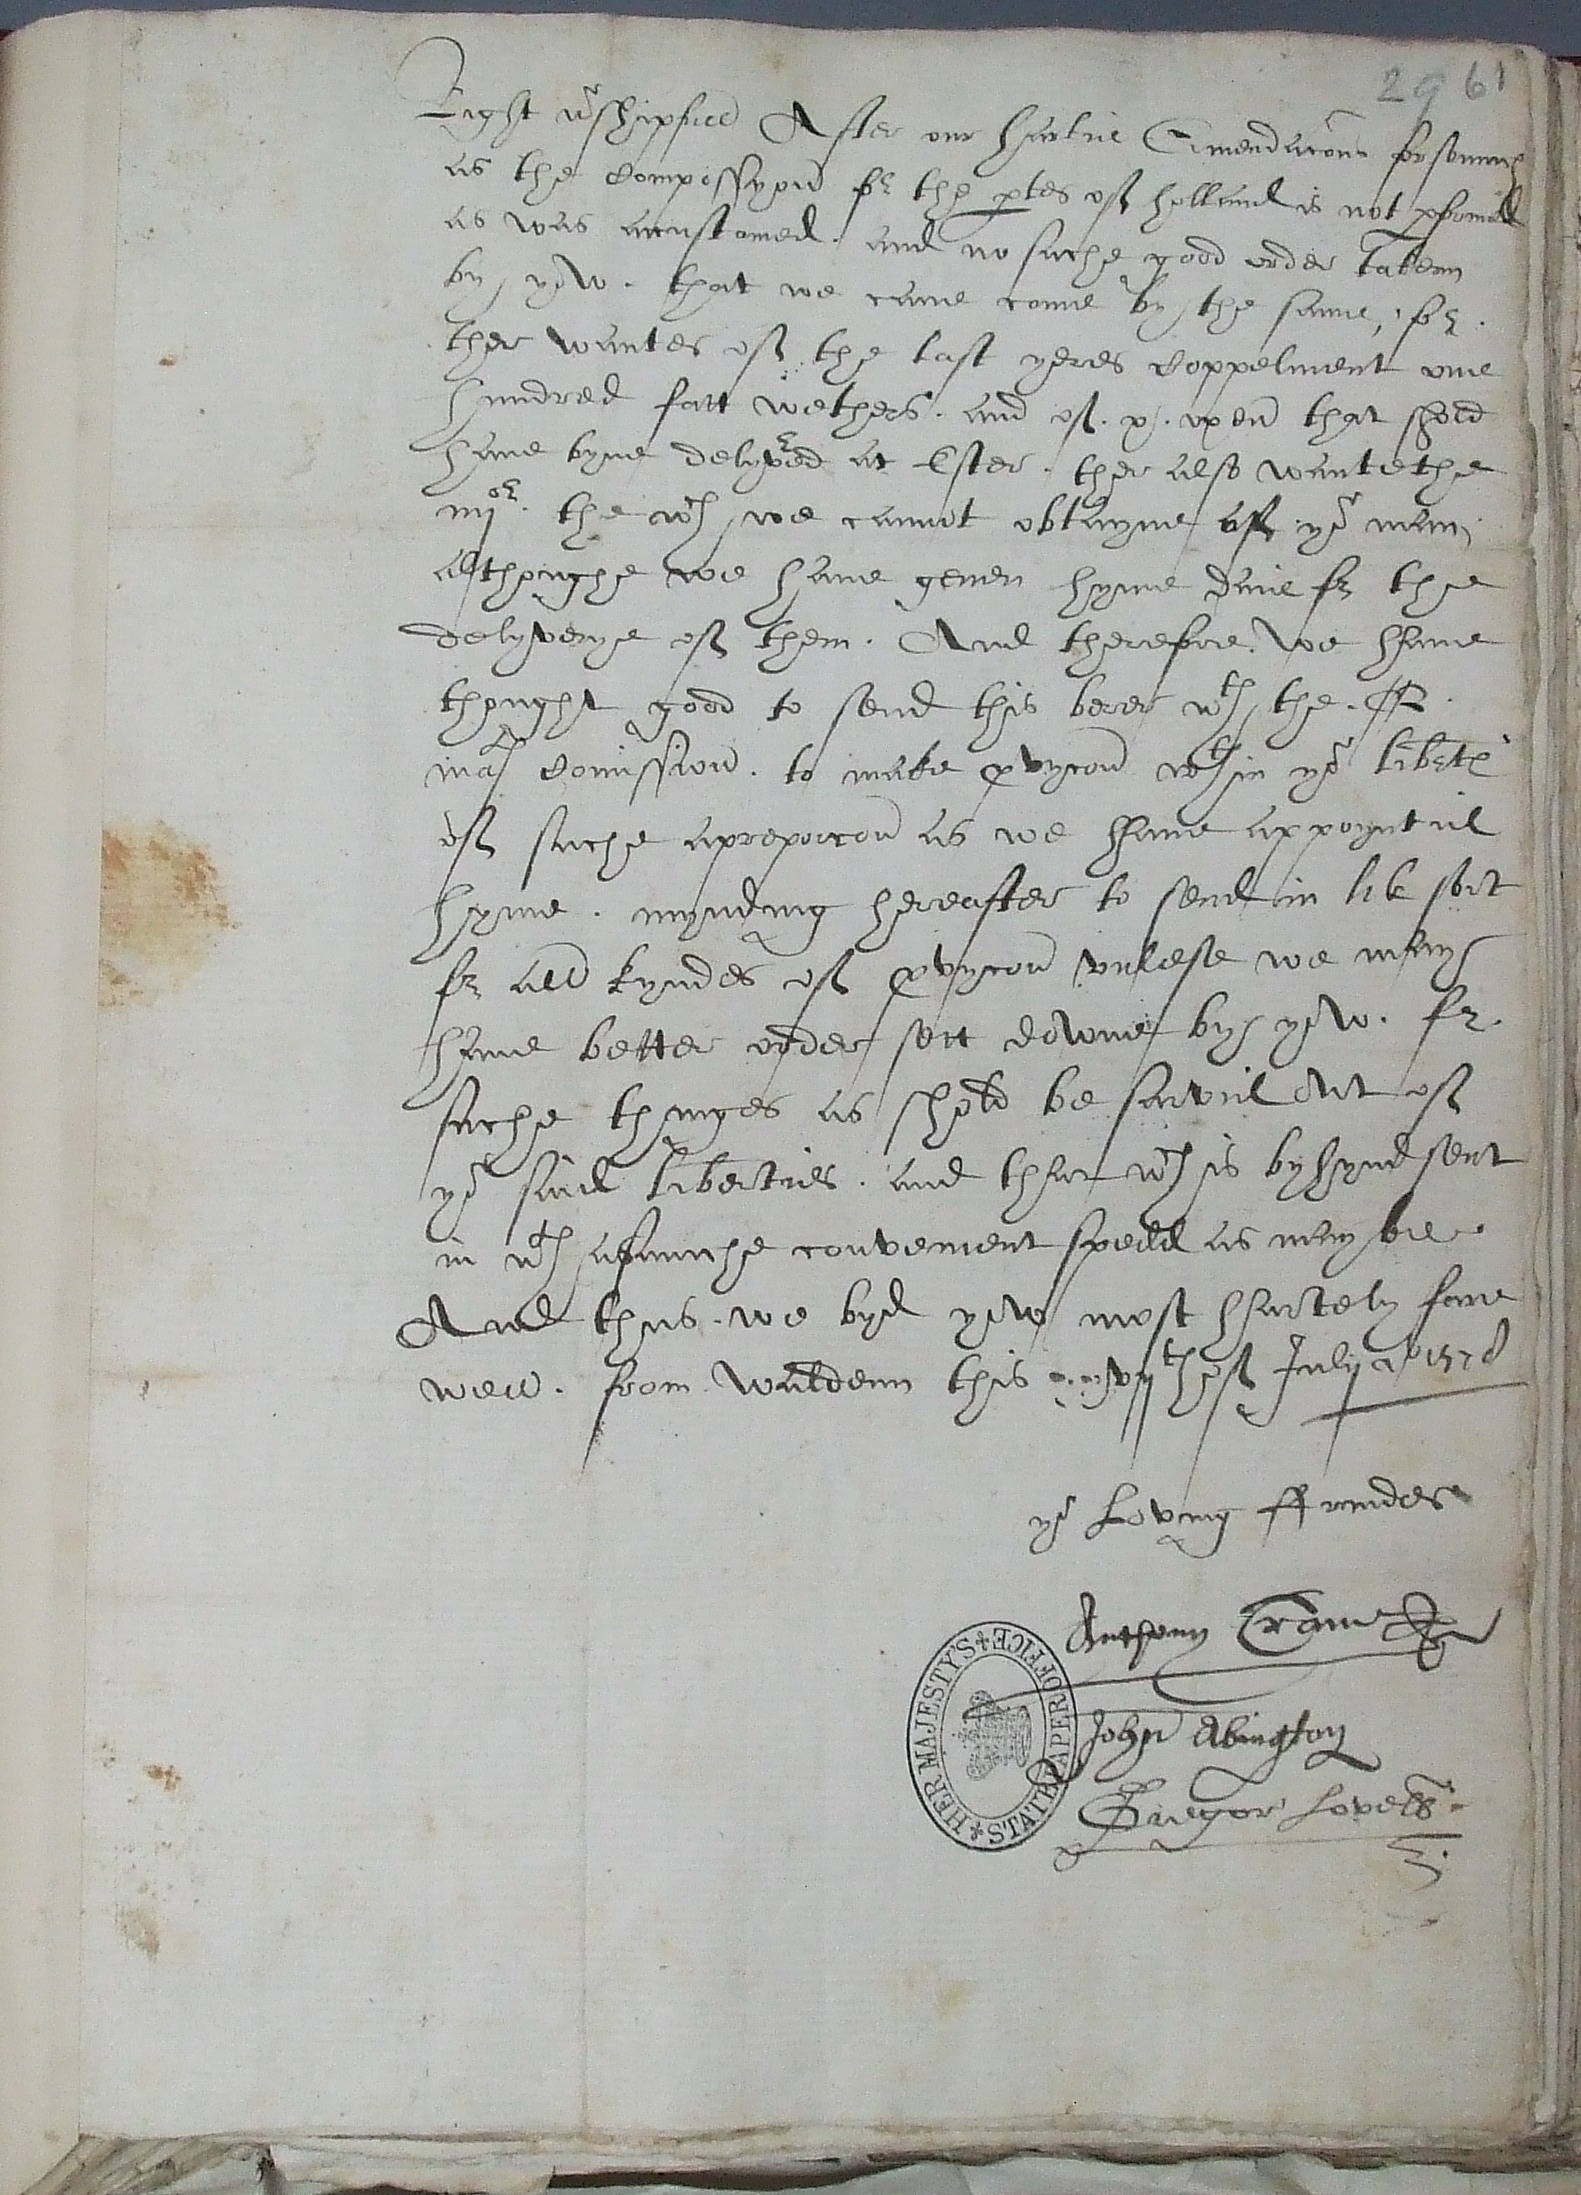 29 61
Right wrshipfull After our hartie Comendacons forsomuch
as the Compossyon for the ptes of Holland is not pformed
as was acustomed. and no suche good order taken
by yow. that we cane come by the same, for.
ther wantes of the last yeres Coppelment one
hundred fatt wethers. and of. x. oxen that shold
have byne delyvred at Ester. ther also wantethe
iiijor. the wch we cannot obtayne of yor man,
althoughe we have geven hyme daie for the
delyverye of them. And therefore. we have
thought good to send this berer wth the. Q.
matz Comission. to make pvycon wthin yor libertz
of suche apreporcon as we have appoynted
hyme. mynding hereafter to send in lik sort
for all kyndes of pvycon unlese we may
have better order sett downe by yow. for.
suche thinges as shold be served out of
yor said liberties. and that wch is byhynd sent
in wth asmuche convenient spedd as may be.
And thus. we byd yow most hartely fare
well. from. Waldenn this th of Julij ao 1578
yor Loving ffrindes
Anthony Crane
John Abington
Gregor Lovell
HER MAJESTY'S STATE PAPER OFFICE